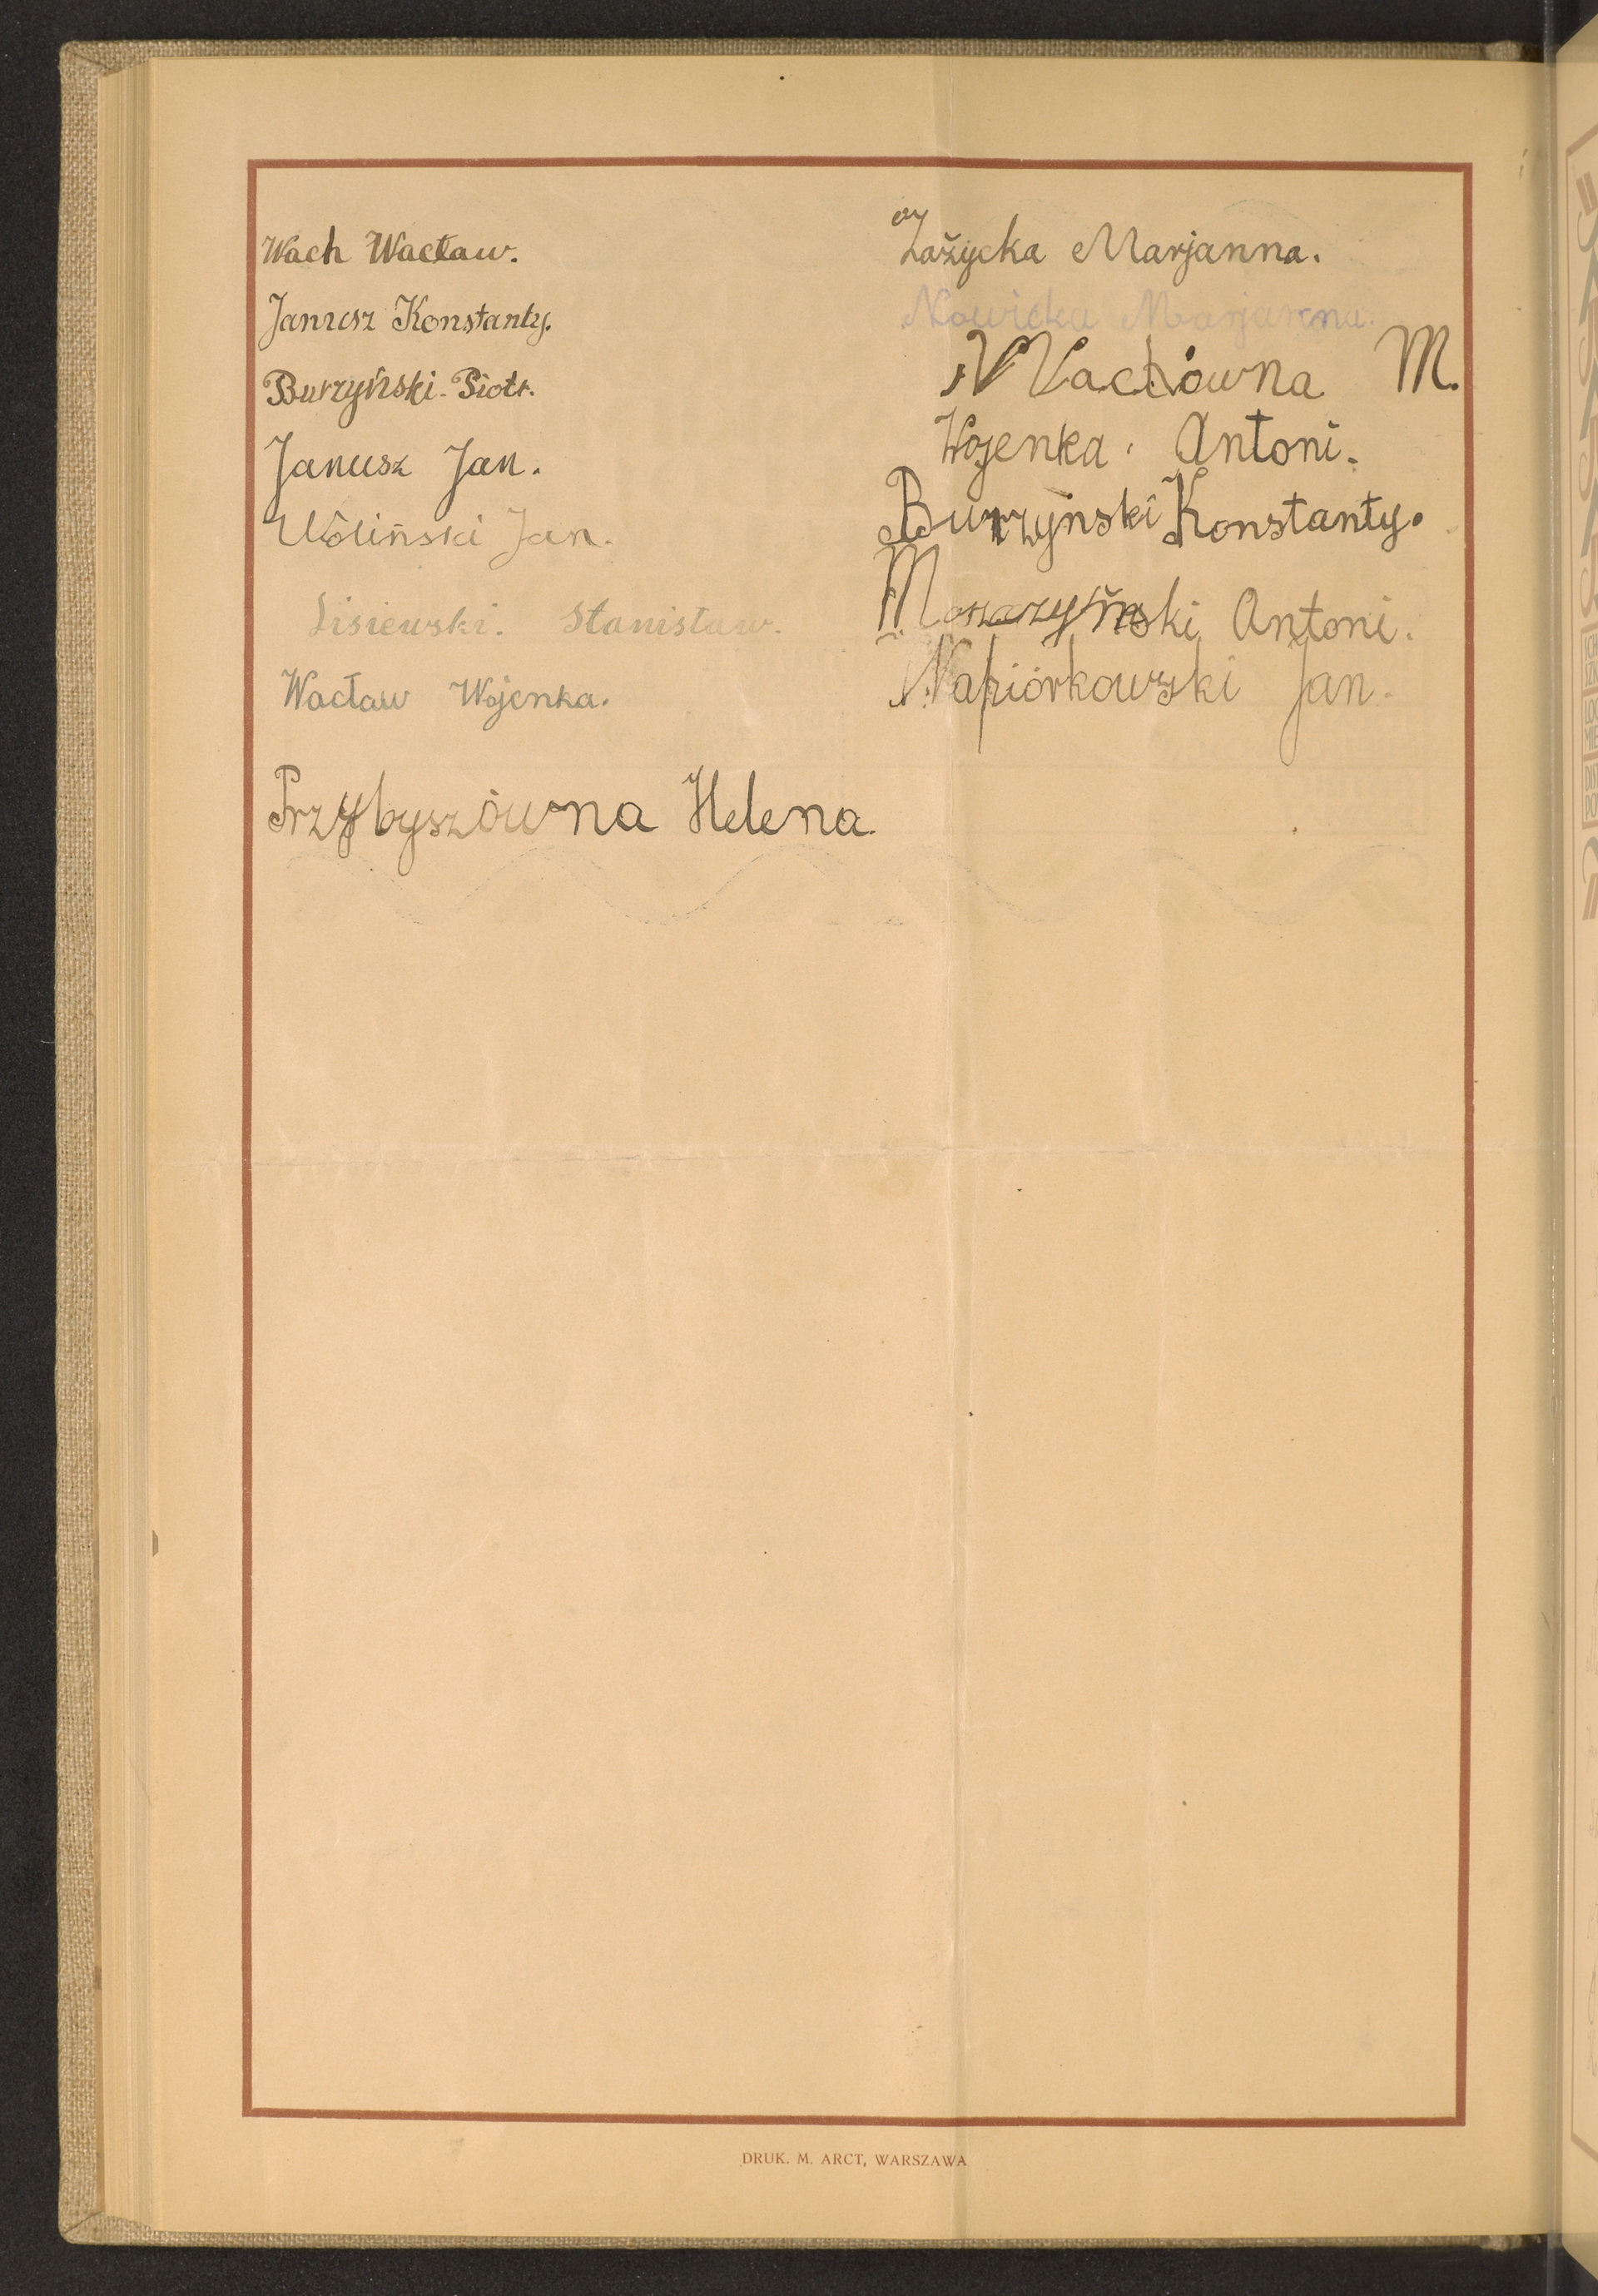 Wach Wacław.
Janusz Konstanty.
Burzyński Piotr.
Janusz Jan.
Woliński Jan.
Lisiewski. Stanisław.
Wacław Wojenka.
Przybyszówna Helena.
Zażycka Marjanna.
Nowicka Marjanna.
Wachówna M.
Wojenka Antoni.
Burzyński Konstanty.
Antoni.
Napiórkowski Jan.
DRUK. M. ARCT, WARSZAWA